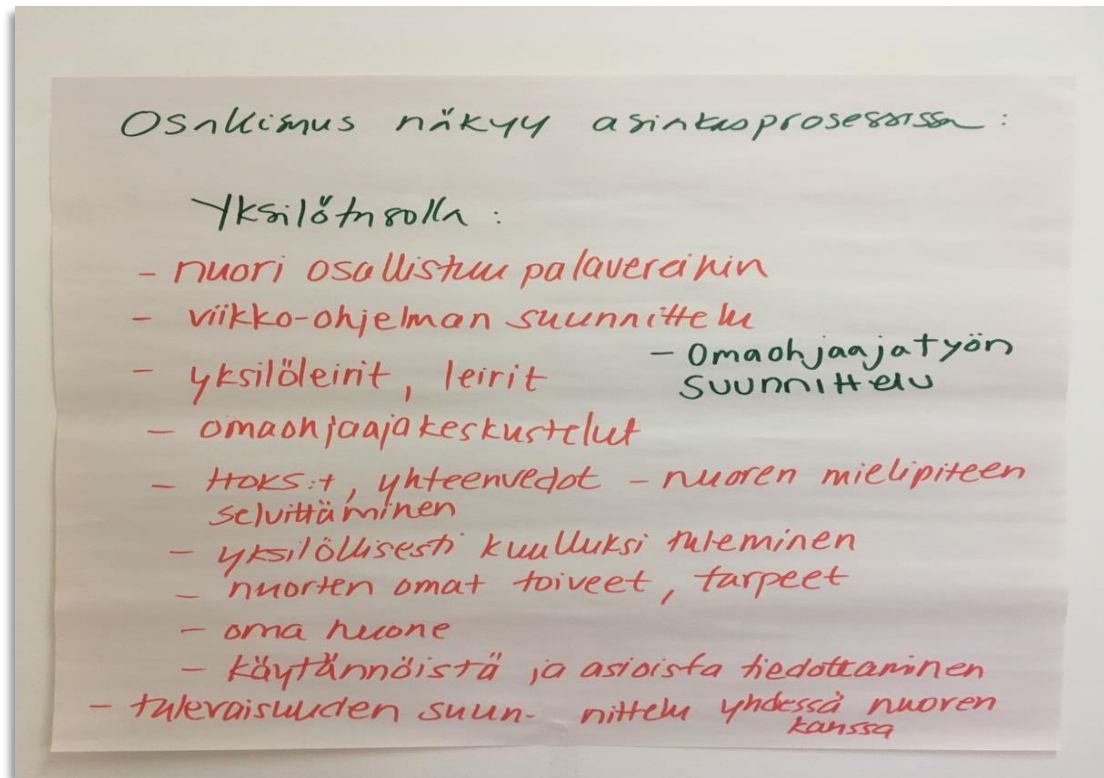 Osallisuus näkyy asiakasprosessissa:
Yksilötasolla:
- nuori osallistuu palavereihin
- viikko-ohjelman suunnittelu
- yksilöleirit, leirit
- Omaohjaajatyön
suunnittelu
- omaohjaajakeskustelut
- HOKS:t, yhteenvedot - nuoren mielipiteen
selvittäminen
- yksilöllisesti kuulluksi tuleminen
- nuorten omat toiveet, tarpeet
- oma huone
- käytännöistä ja asioista tiedottaminen
- tulevaisuuden suun- nittelu yhdessä nuoren
kanssa